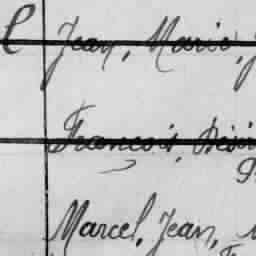 Jean, Marie,
François, Désir
Marcel, Jean,